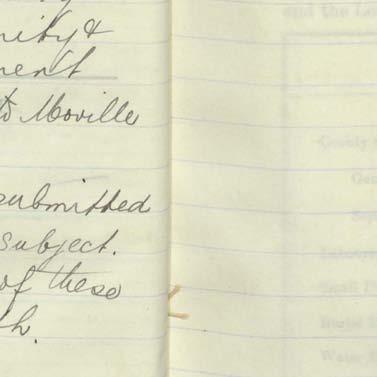 nity &
ment
to Moville
submitted
subject.
of these
th.
and the Lo
County
Gen
Sep
Infectio
Small P
Burial
Water